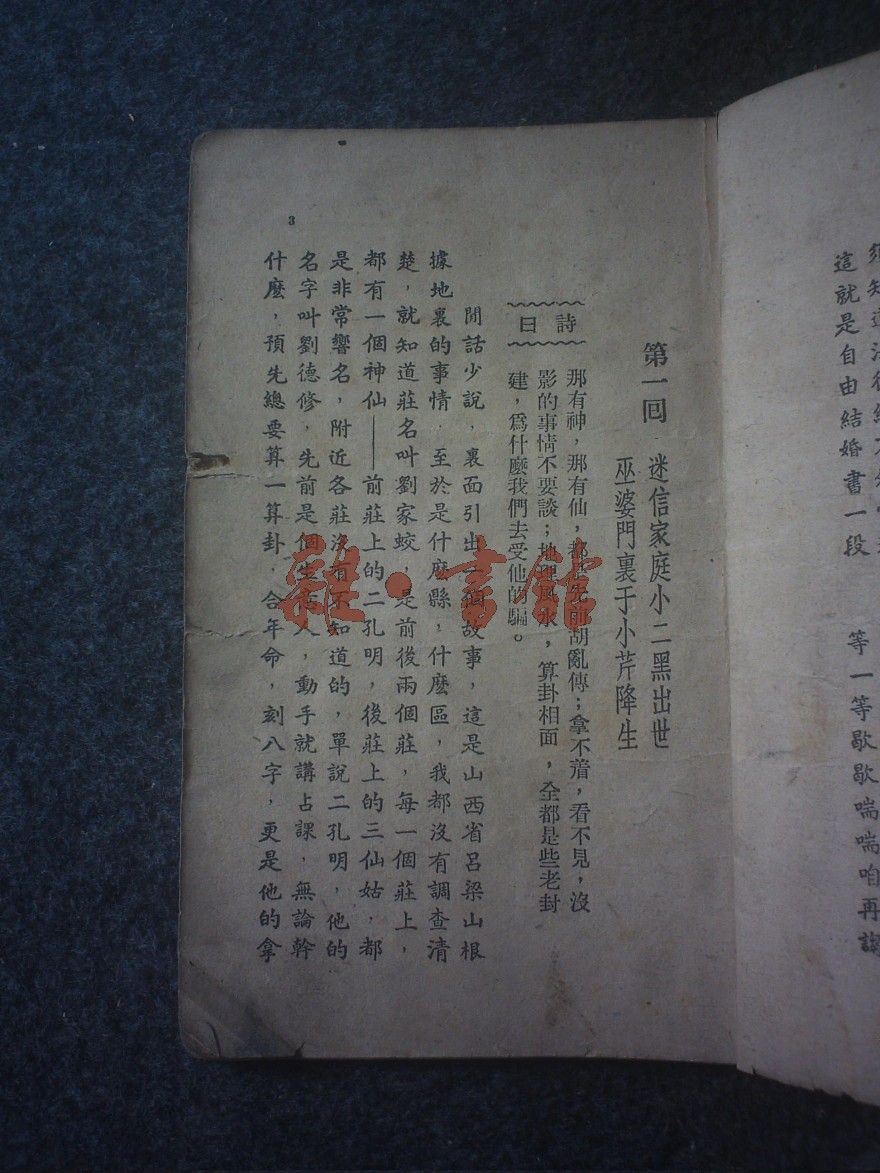 這就是自由結婚書一段　等一等歇歇喘喘咱再
第一回　迷信家庭小二黑出世
巫婆門裏于小芹降生
詩曰
那有神，那有仙，都是先前胡亂傳；拿不着，看不見，沒
影的事情不要談；地理風水，算卦相面，全都是些老封
建，爲什麽我們去受他的騙。
閒話少說，裏面引出一個故事，這是山西省呂梁山根
據地裏的事情．至於是什麽縣，什麽區，我都沒有調查清
楚，就知道莊名叫劉家蛟，是前後兩個莊，每一個莊上，
都有一個神仙——前莊上的二孔明，後莊上的三仙姑，都
是非常響名，附近各莊沒有不知道的，單說二孔明，他的
名字叫劉德修，先前是個生意人，動手就講占課，無論幹
什麽，預先總要算一算卦．合年命，刻八字，更是他的拿
3
雜·書館